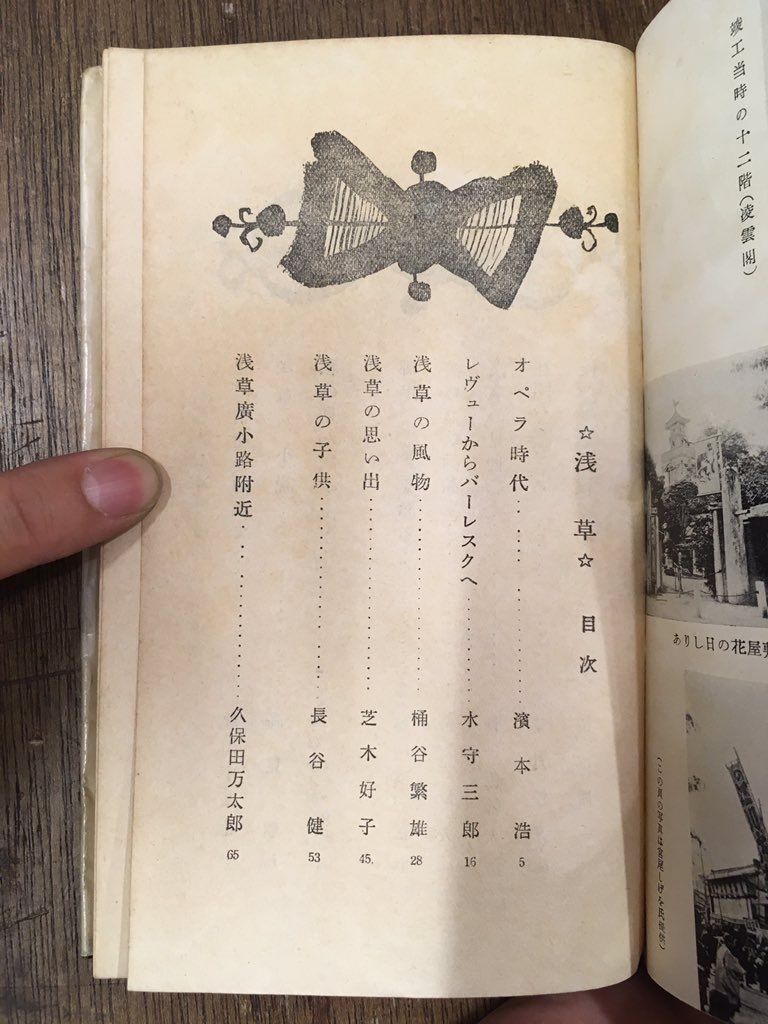 竣工当時の十二階(凌雲閣)
ありし日の花屋敷
(この頁の写真は宮尾しげを氏提供)
☆浅草☆ 目次
オペラ時代………………濱本浩 5
レヴューからバーレスクへ…………水守三郎 16
浅草の風物………………桶谷繁雄 28
浅草の思い出………………芝木好子 45.
浅草の子供………………長谷健 53
浅草廣小路附近………………久保田万太郎 65